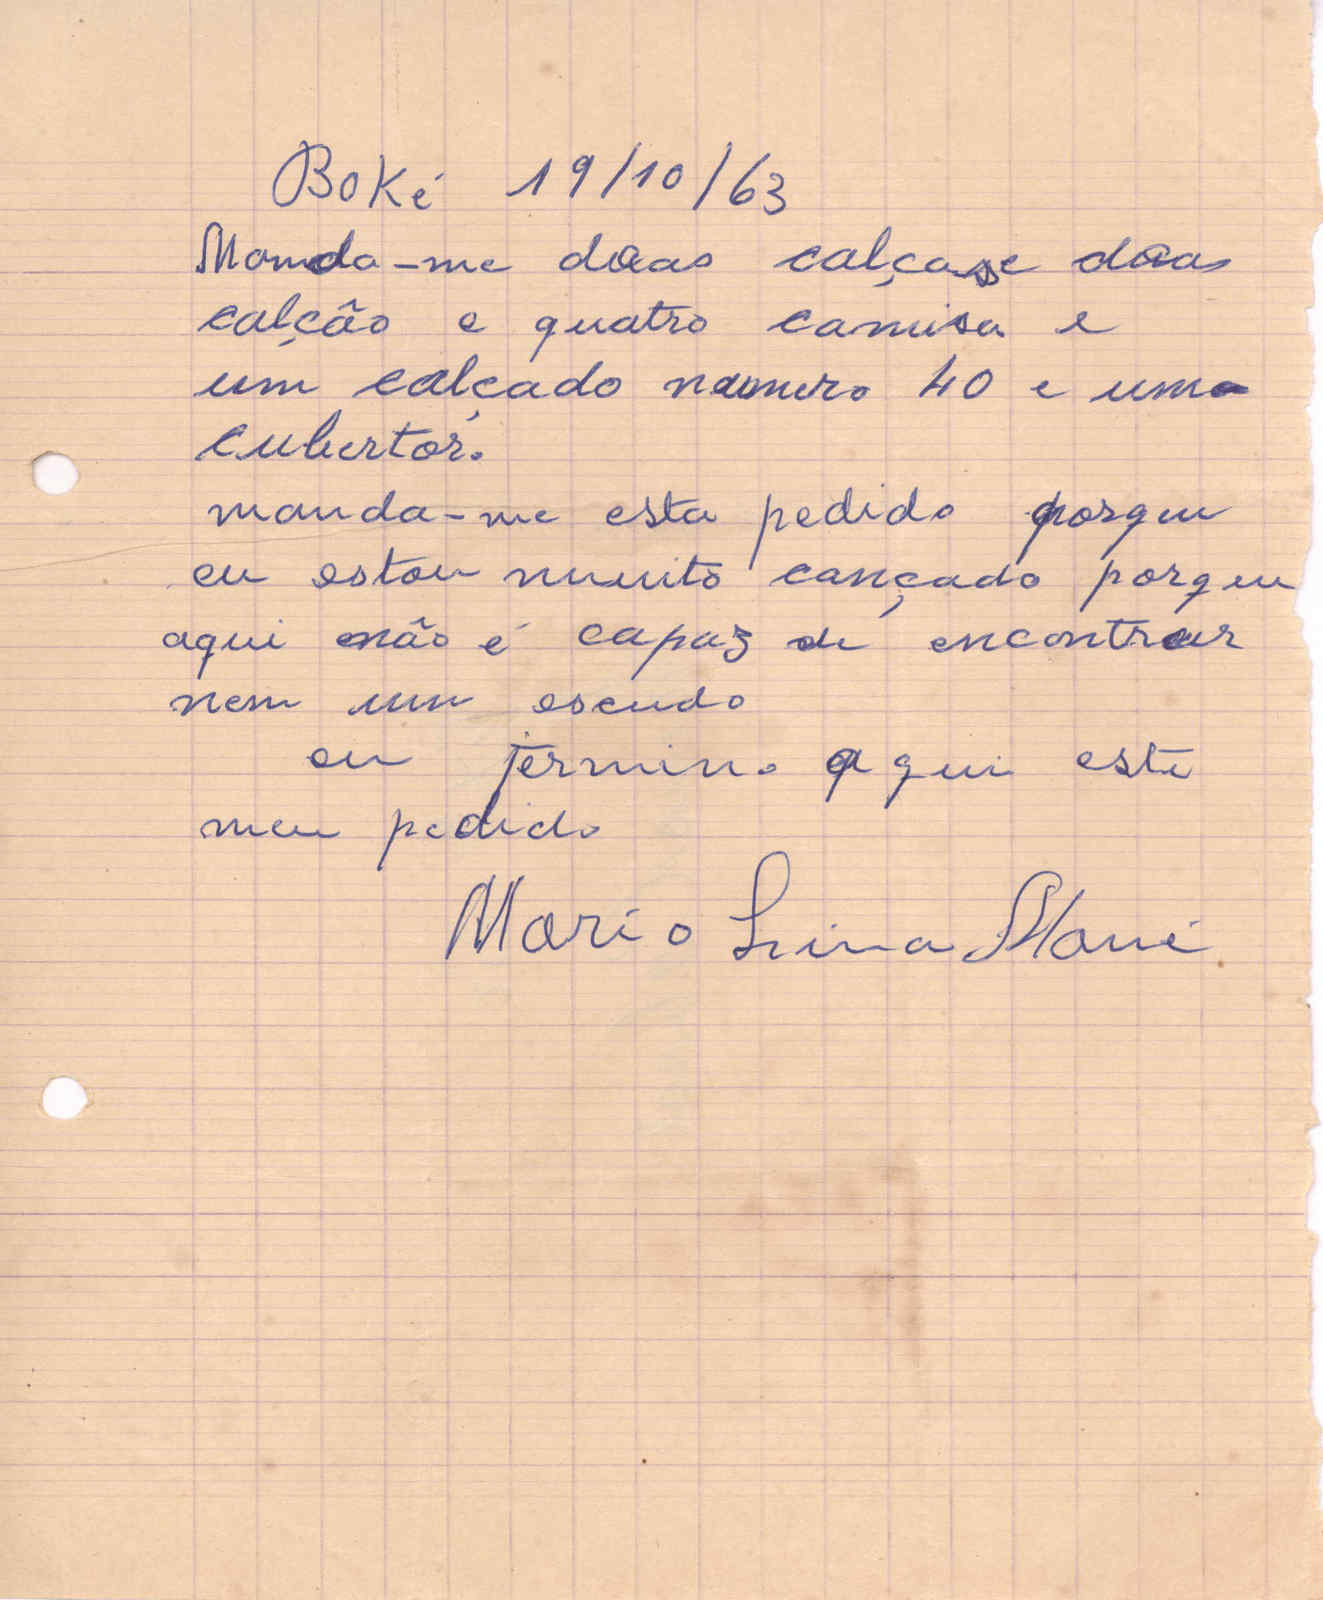 Boké 19/10/63
Manda-me doas calças e doas
calcão e quatro camisa e
um calçado numero 40 e uma
cubertor.
manda-me esta pedido porque
eu estou muito cançado porque
aqui não é capaz de encontrar
nem um escudo
eu termino aqui este
meu pedido
Mario Lima Mané